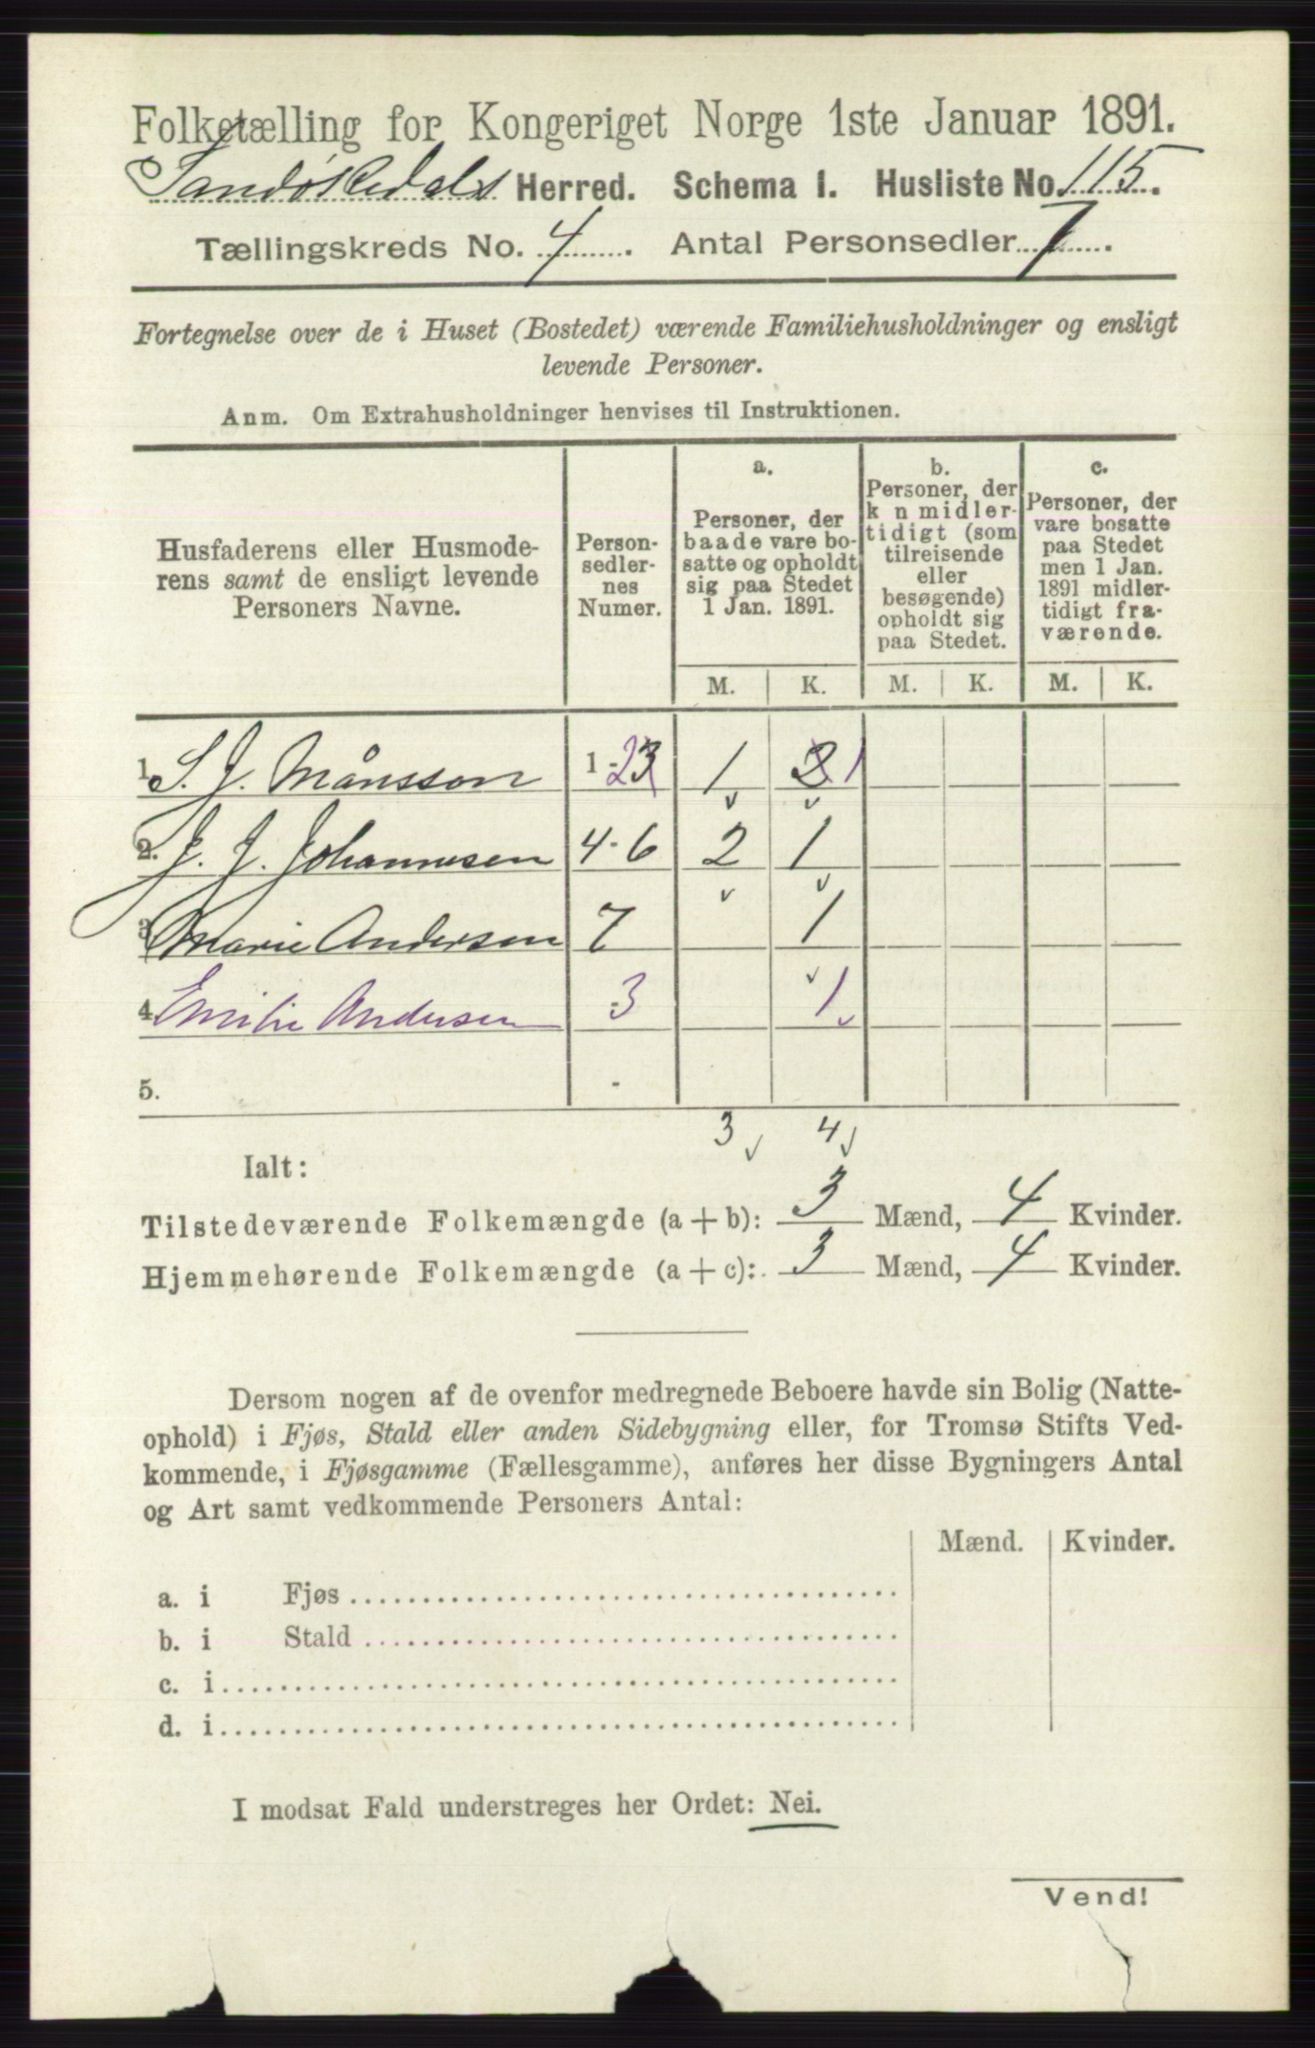 Folketælling for Kongeriget Norge 1ste Januar 1891.
Sandøkedals Herred. Schema I. Husliste No. 115.
Tællingskreds No. 4. Antal Personsedler 7.
Fortegnelse over de i Huset (Bostedet) værende Familiehusholdninger og ensligt
levende Personer.
Anm. Om Extrahusholdninger henvises til Instruktionen.
Husfaderens eller Husmode-
rens samt de ensligt levende
Personers Navne.
Person-
sedler-
nes
Numer.
a.
Personer, der
baade vare bo-
satte og opholdt
sig paa Stedet
1 Jan. 1891.
b.
Personer, der
k n midler-
tidigt (som
tilreisende
eller
besøgende)
opholdt sig
paa Stedet.
c.
Personer, der
vare bosatte
paa Stedet
men 1 Jan.
1891 midler-
tidigt fra-
værende.
M. K. M. K. M. K.
1. S. J. Månsson 1-23 1 2 1
2. J. J. Johannesen 4-6 2 1
3. Marie Andersen 7 1
4. Emilie Andersen 3 1
5.
3 4
Ialt:
Tilstedeværende Folkemængde (a + b): 3 Mænd, 4 Kvinder.
Hjemmehørende Folkemængde (a + c): 3 Mænd, 4 Kvinder.
Dersom nogen af de ovenfor medregnede Beboere havde sin Bolig (Natte-
ophold) i Fjøs, Stald eller anden Sidebygning eller, for Tromsø Stifts Ved-
kommende, i Fjøsgamme (Fællesgamme), anføres her disse Bygningers Antal
og Art samt vedkommende Personers Antal:
Mænd. Kvinder.
a. i Fjøs
b. i Stald
c. i
d. i
I modsat Fald understreges her Ordet: Nei.
Vend!